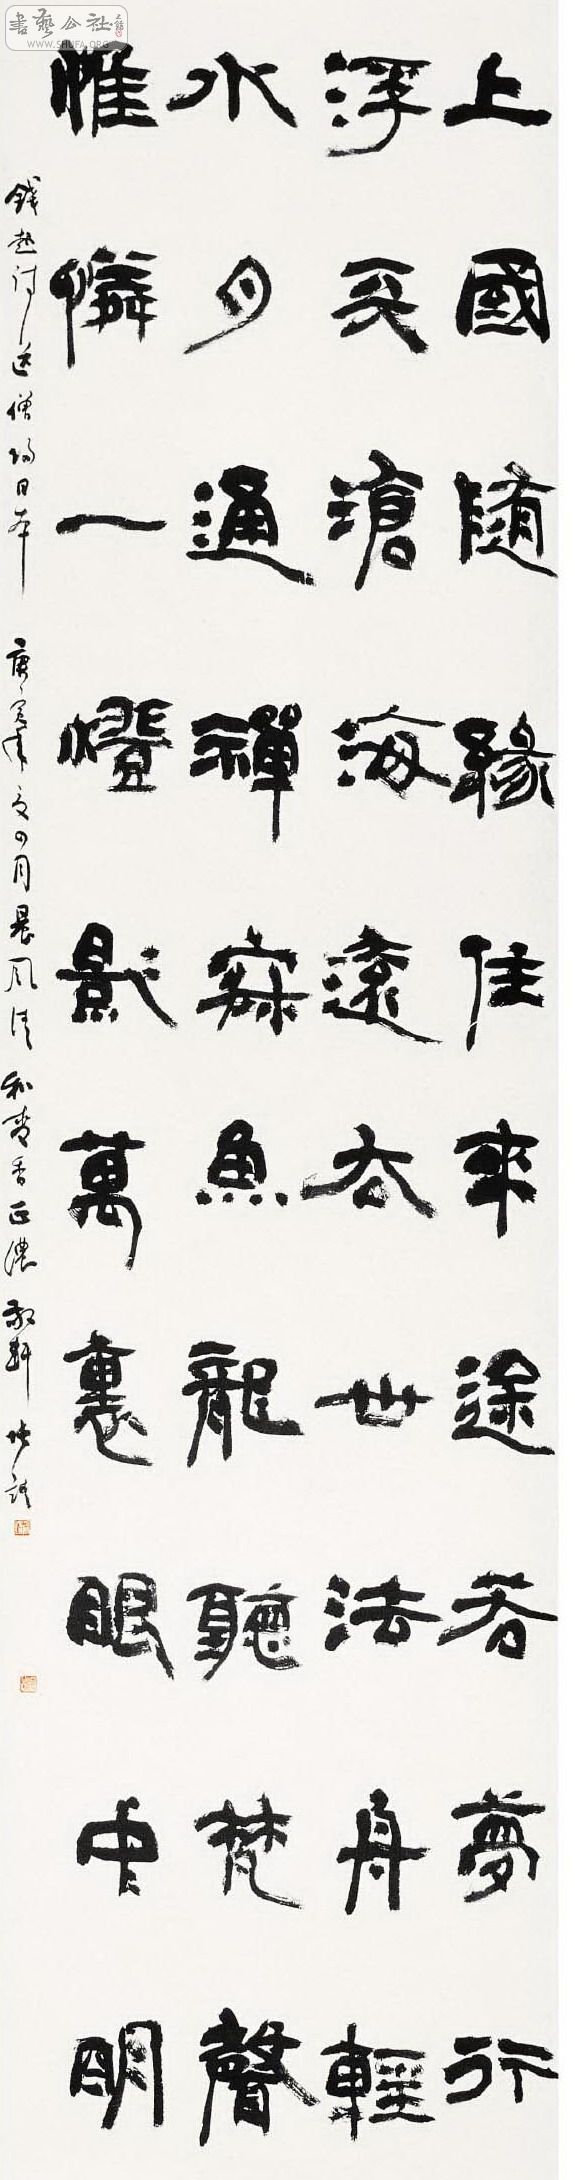 書藝公社
WWW.SHUFA.ORG
上國隨緣住來途若夢行
浮天滄海遠去世法舟輕
水月通禪寂魚龍聽梵聲
惟憐一燈影萬裏眼中明
錢起詩送僧歸日本 庚寅年夏四月晨風清和麥香正濃